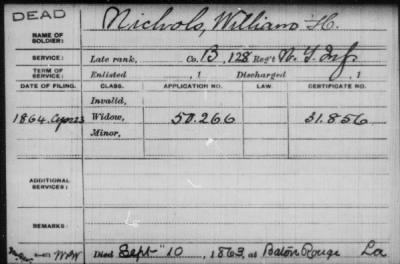 DEAD
NAME OF SOLDIER: Nichols, William H.
SERVICE: Late rank, Co. B, 128 Reg't N. Y. Inf.
TERM OF SERVICE: Enlisted , 1 Discharged , 1
DATE OF FILING. CLASS. APPLICATION NO. LAW. CERTIFICATE NO.
Invalid,
1864. Apr 23 Widow, 50.266 31.856
Minor,
ADDITIONAL SERVICES:
REMARKS:
Died Sept 10, 1863, at Baton Rouge La